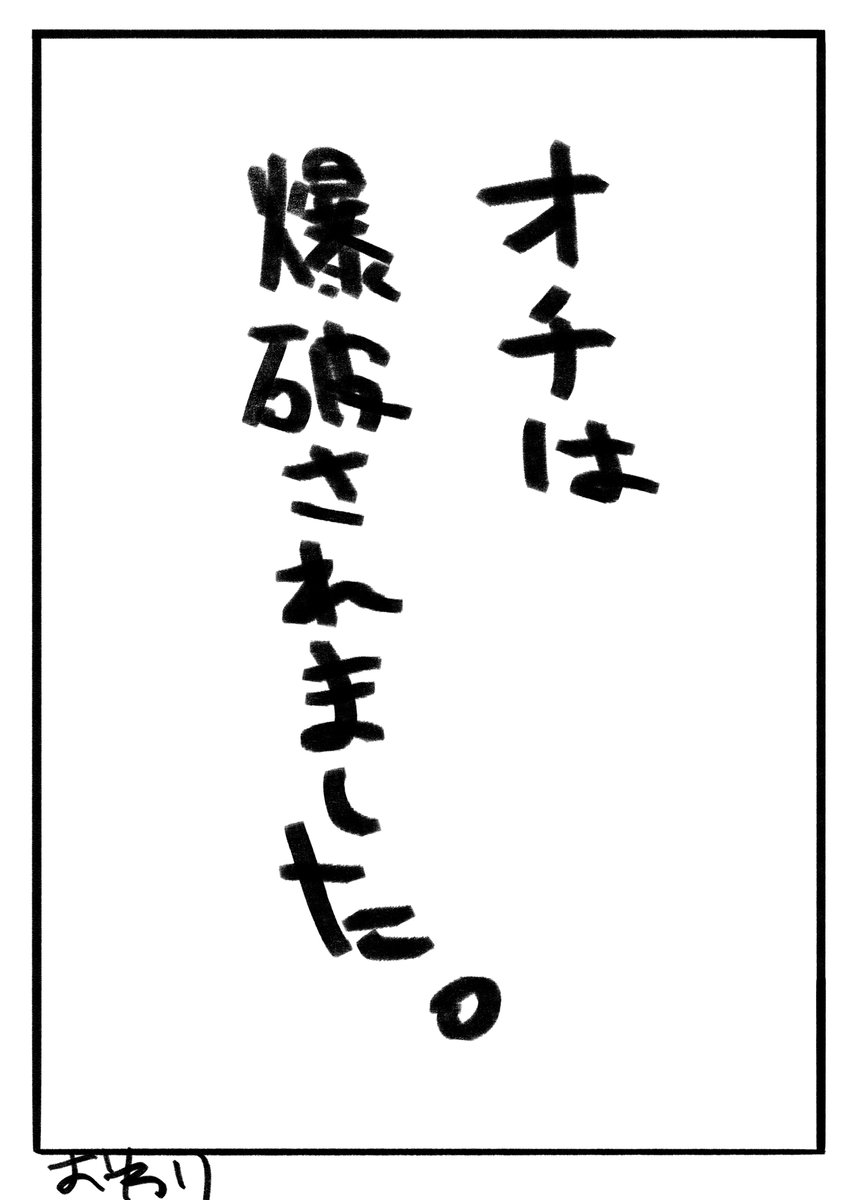 オチは
爆破されました。
おわり